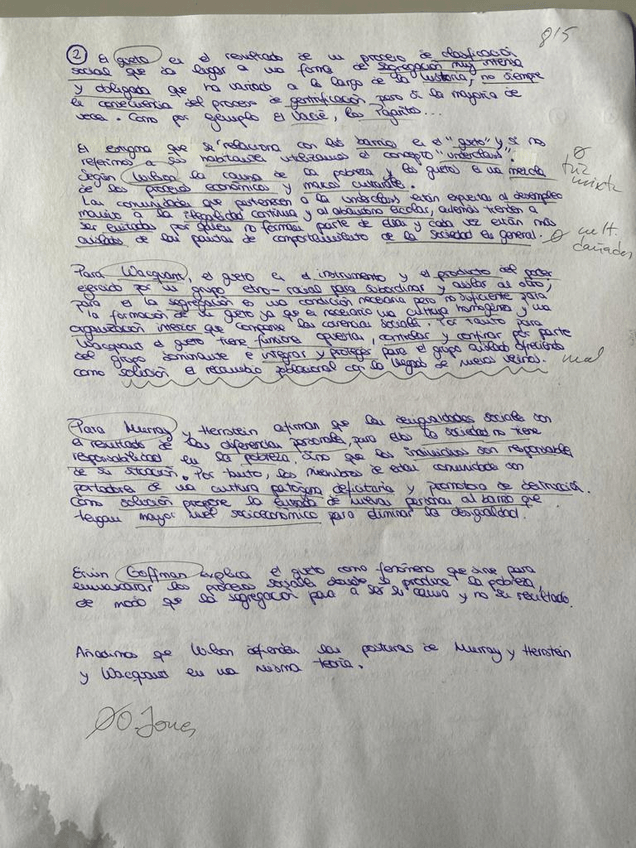 8'5
② El gueto es el resultado de un proceso de clasificación
social que da lugar a una forma de segregación muy intensa
y obligada que ha variado a lo largo de la historia, no siempre
es consecuencia del proceso de gentrificación pero si la mayoría de
veces. Como por ejemplo el Vacie, los
El estigma que se relaciona con los barrios es el "gueto" y si nos
referimos a sus habitantes utilizamos el concepto "underclass".
Según Wilson la causa de la pobreza y los guetos es una mezcla
de los procesos económicos y marco culturale.
Las comunidades que pertenecen a la underclass están expuestas al desempleo
masivo a la ilegalidad continua y al abandono escolar, quienes tienden a
ser evitados por quien no forman parte de ellas y cada vez están más
aislados de las pautas de comportamiento de la sociedad en general.
mixta
mult.
Para Wacquant, el gueto es el instrumento y el producto del poder
ejercido por un grupo etno-racial para subordinar y aislar al otro,
para el la segregación es una condición necesaria pero no suficiente para
la formación de un gueto ya que es necesario una cultura homogénea y una
organización interior que compense las carencias sociales. Por tanto para
Wacquant el gueto tiene funciones opuestas, controlar y confinar por parte
del grupo dominante e integrar y proteger para el grupo aislado ofreciendo
como solución el recambio poblacional con la llegada de nuevos vecinos.
mal
Para Murray y Herrstein afirman que las desigualdades sociales son
el resultado de las diferencias personales, para ellos la sociedad no tiene
responsabilidad en la pobreza. Sino que los individuos son responsables
de su situación. Por tanto, los miembros de estas comunidades son
portadores de una cultura patógena deficitaria y promotora de destrucción.
Como solución propone la entrada de nuevas personas al barrio que
tengan mayor nivel socioeconómico para eliminar la desigualdad.
Ervin Goffman explica el gueto como fenómeno que sirve para
enmascarar los procesos sociales donde se produce la pobreza,
de modo que la segregación pasa a ser su causa y no su resultado.
Añadimos que Wilson defiende las posturas de Murray y Herrstein
y Wacquant en una misma teoría.
O. Jones